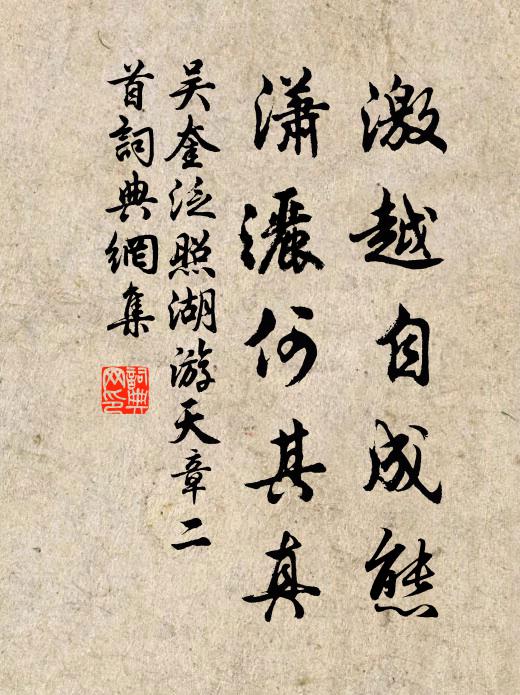 激越自成態
瀟灑何其真
吳奎泛照湖游天章二
首詞典網集
詞典
网印